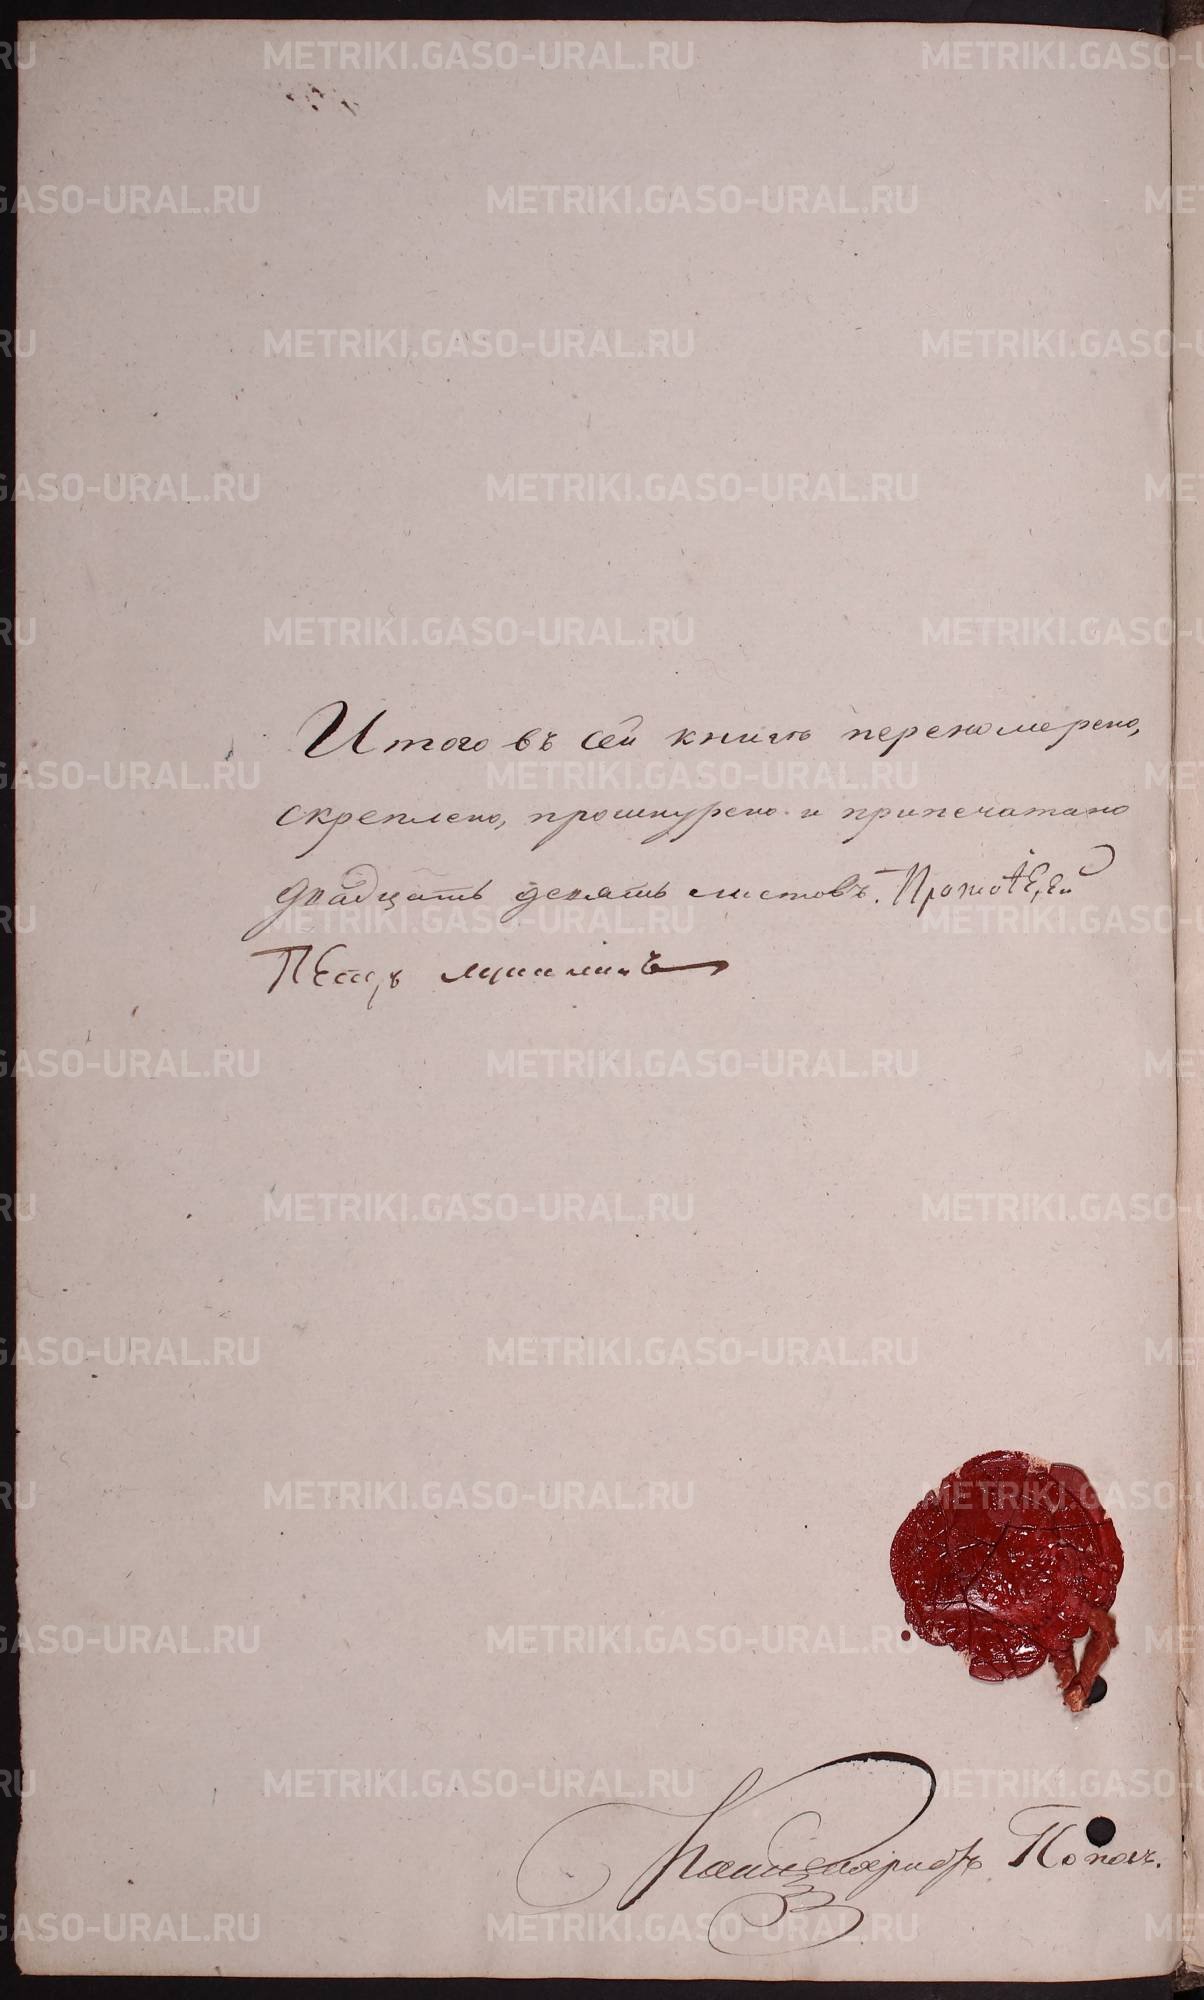 Итого въ сей книгѣ перенумерено,
скреплено, прошнурено и припечатано
двадцать девять листовъ. Протоіерей
Петръ
Канцеляристъ Поповъ.
METRIKI.GASO-URAL.RU